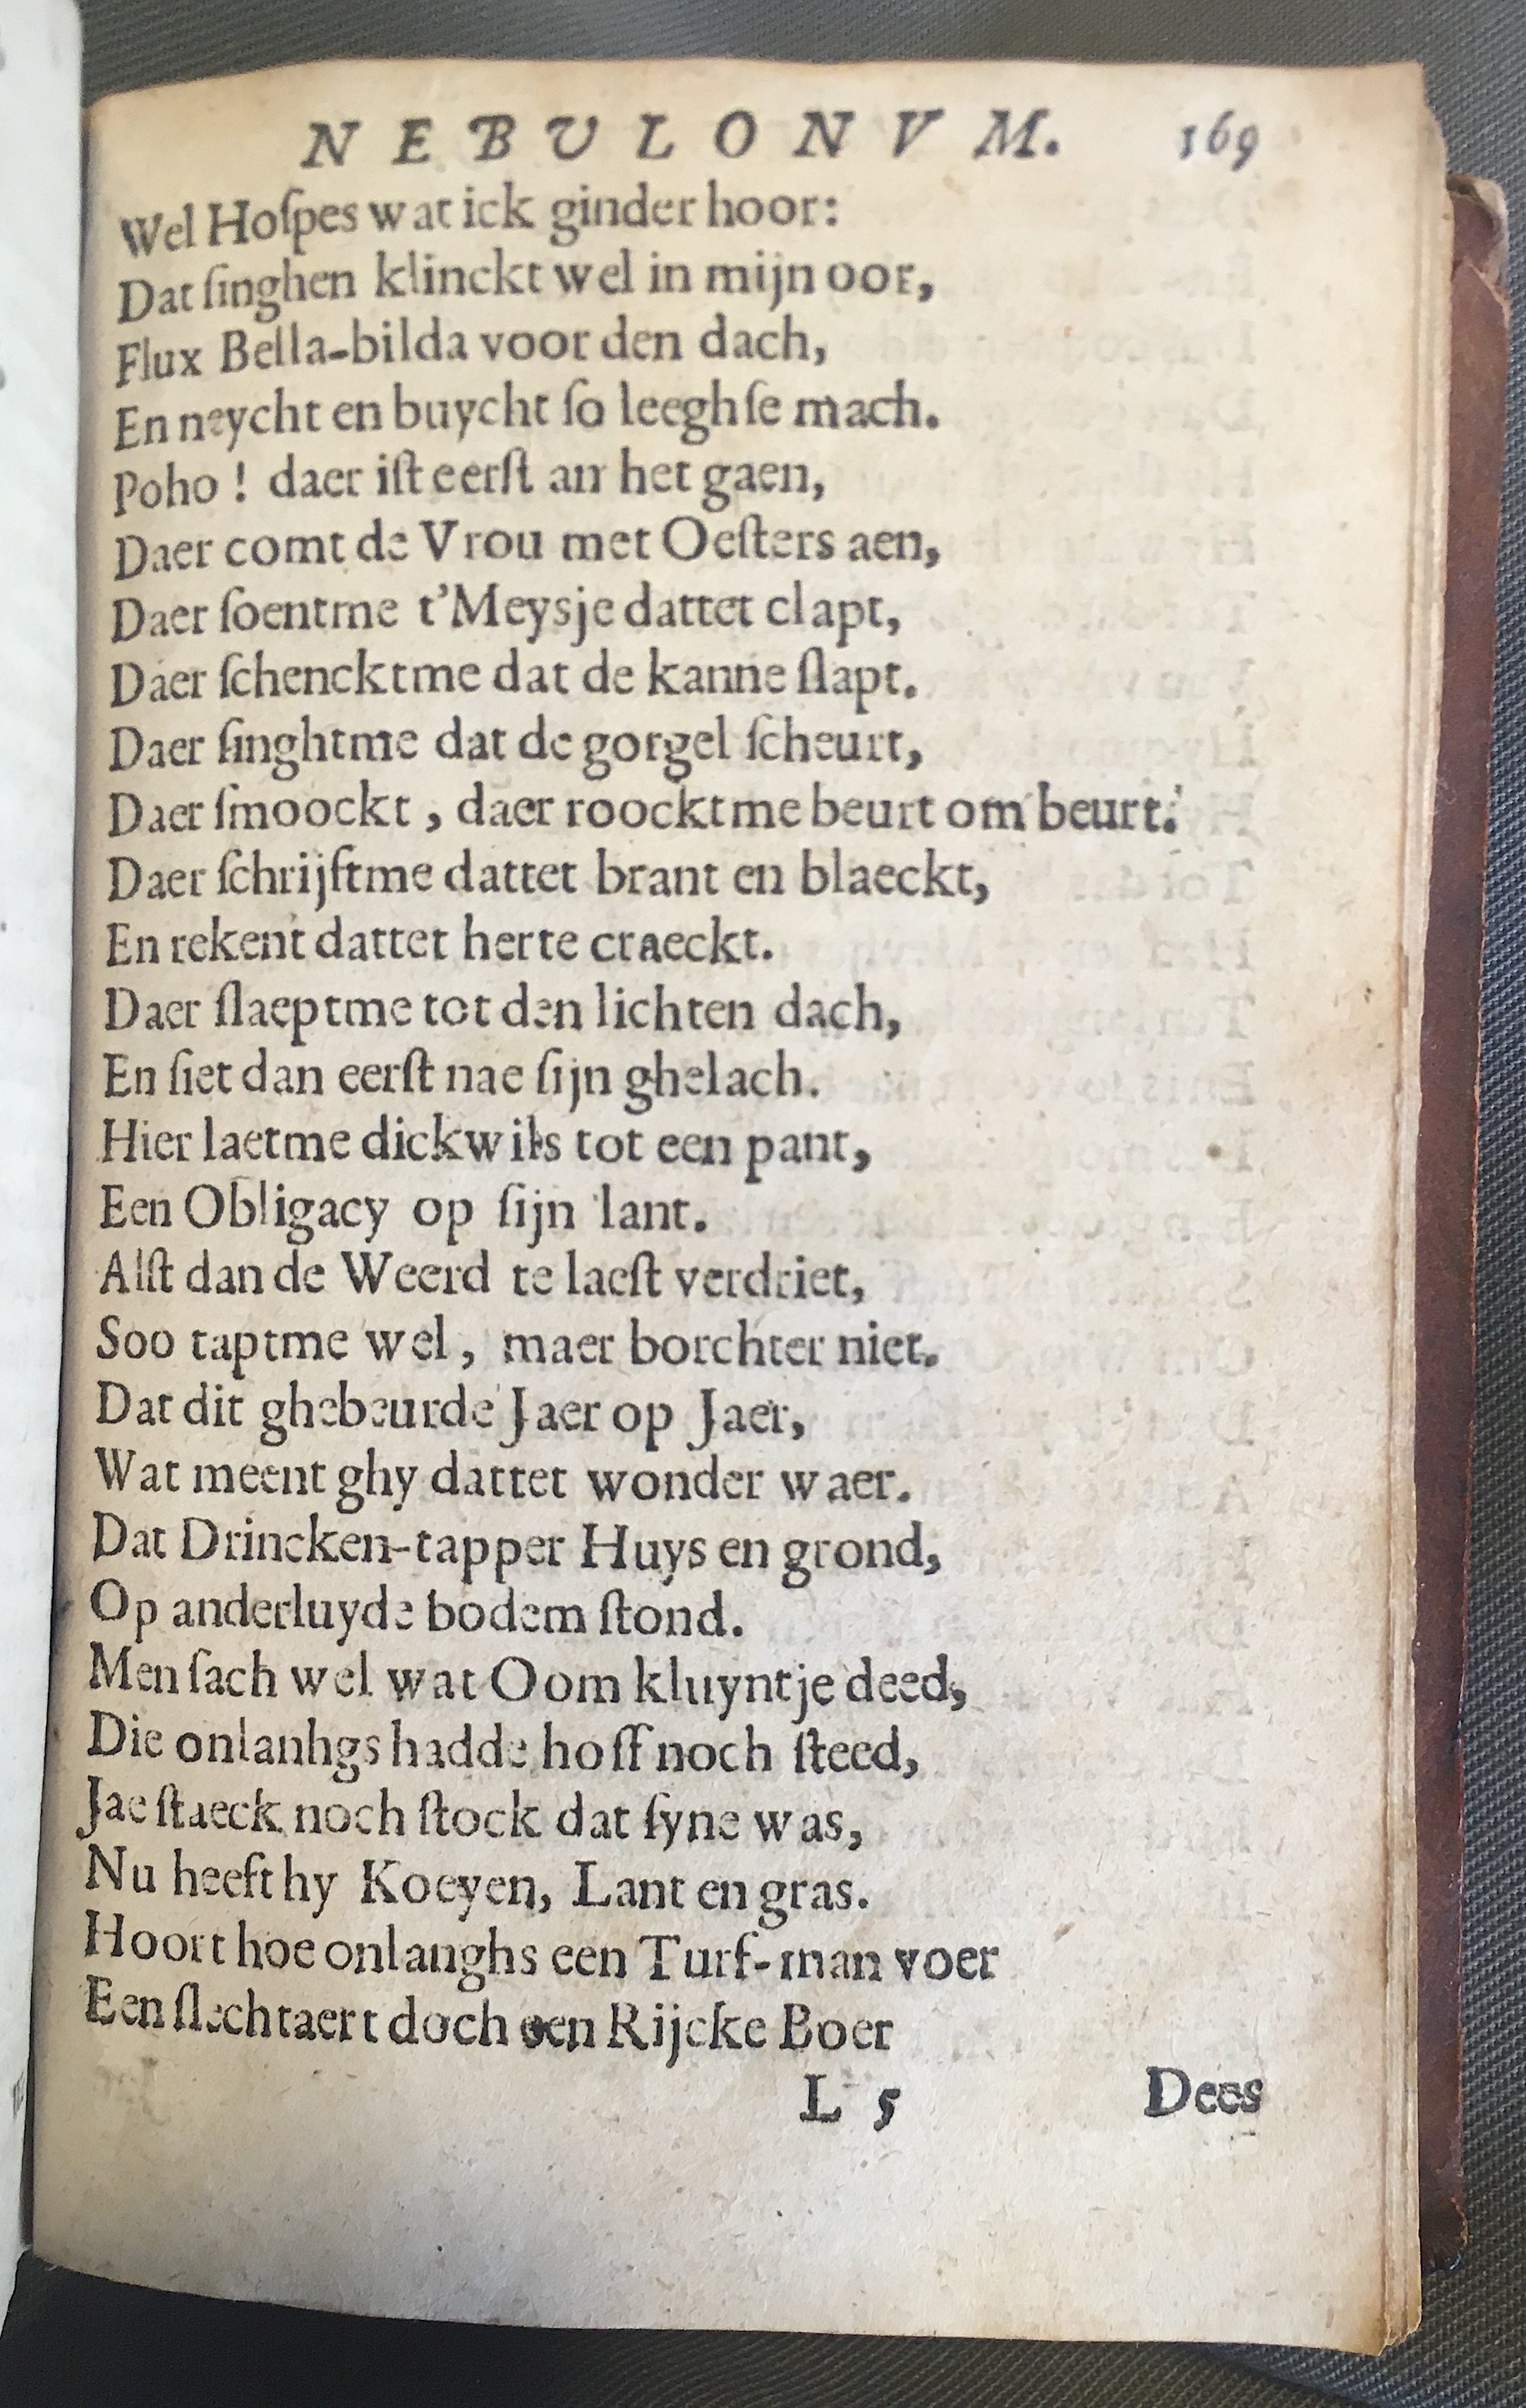 NEBULONVM. 169
Wel Hoſpes wat ick ginder hoor:
Dat ſinghen klinckt wel in mijn oor,
Flux Bella-bilda voor den dach,
En neycht en buycht ſo leegh ſe mach.
Poho ! daer iſt eerſt an het gaen,
Daer comt de Vrou met Oeſters aen,
Daer ſoentme t'Meysje dattet clapt,
Daer ſchencktme dat de kanne ſlapt.
Daer ſinghtme dat de gorgel ſcheurt,
Daer ſmoockt , daer roocktme beurt om beurt.
Daer ſchrijftme dattet brant en blaeckt,
En rekent dattet herte craeckt.
Daer ſlaeptme tot den lichten dach,
En ſiet dan eerſt nae ſijn ghelach.
Hier laetme dickwils tot een pant,
Een Obligacy op ſijn lant.
Alſt dan de Weerd te laeſt verdriet,
Soo taptme wel , maer borchter niet.
Dat dit ghebeurde Jaer op Jaer,
Wat meent ghy dattet wonder waer.
Dat Drincken-tapper Huys en grond,
Op anderluyde bodem ſtond.
Men ſach wel wat Oom kluyntje deed,
Die onlanhgs hadde hoff noch ſteed,
Jae ſtaeck noch ſtock dat ſyne was,
Nu heeft hy Koeyen, Lant en gras.
Hoort hoe onlanghs een Turf-man voer
Een ſlechtaert doch een Rijcke Boer
L 5 Dees